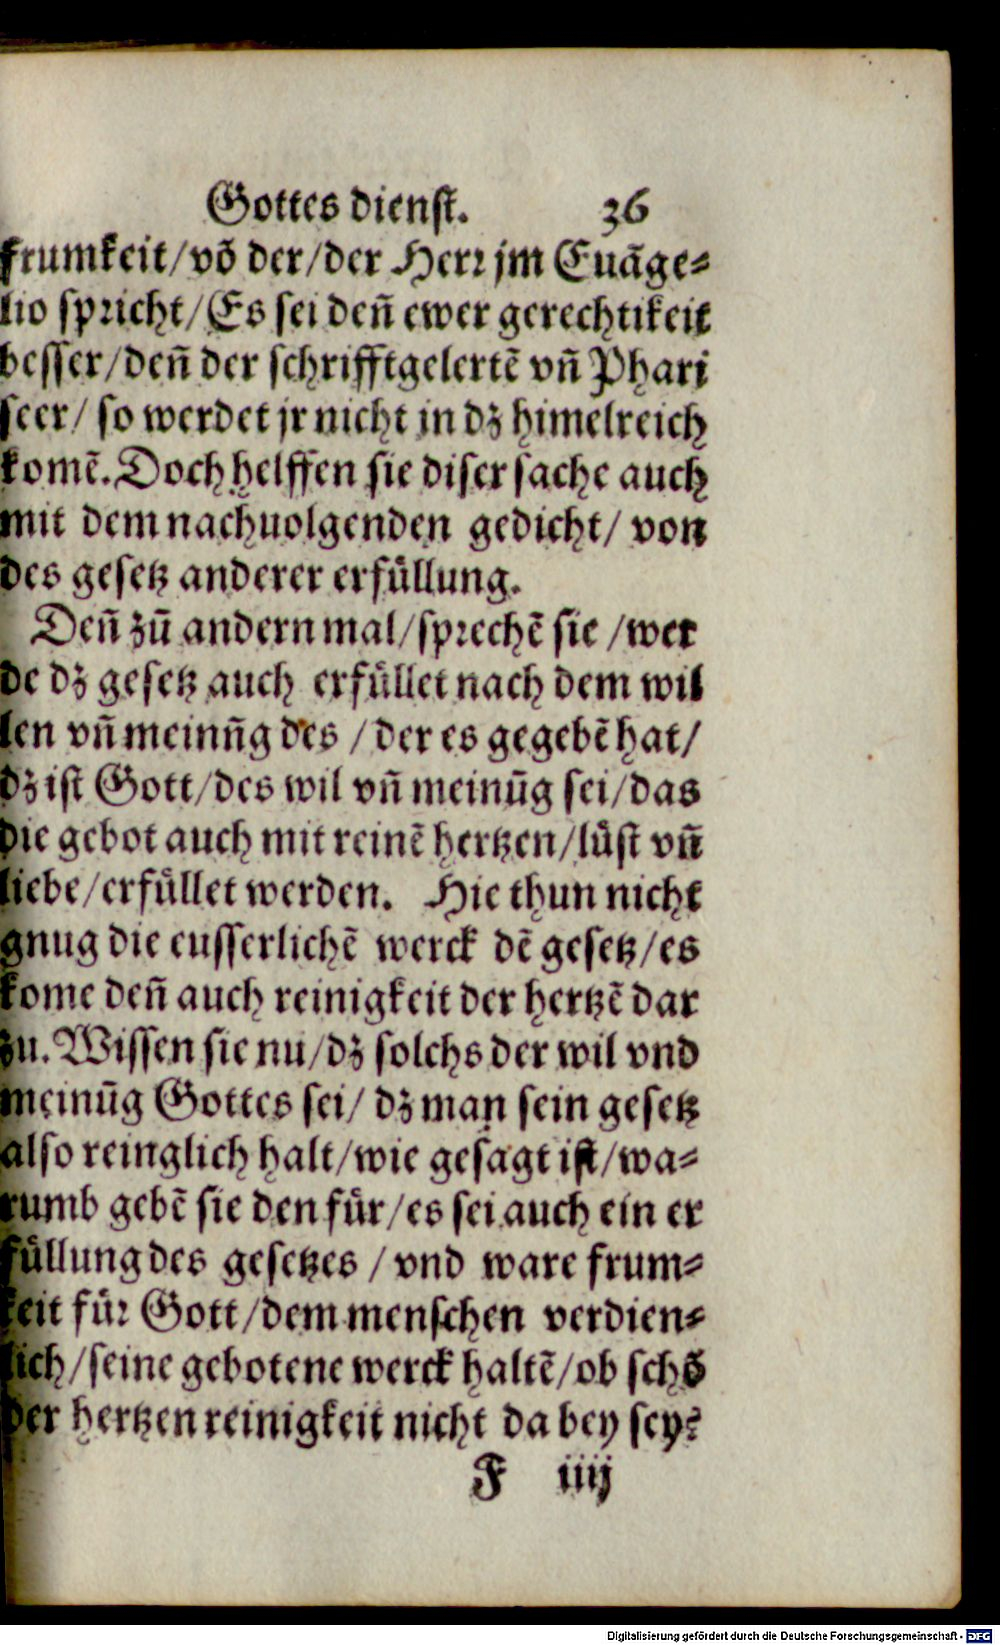 Gottes dienst. 36
frumkeit/võ der/der Herr jm Euãge⸗
lio spricht/Es sei deñ ewer gerechtikeit
besser/deñ der schrifftgelertẽ vñ Phari
seer/ so werdet jr nicht in dz himelreich
komẽ. Doch helffen sie diser sache auch
mit dem nachuolgenden gedicht/ von
des gesetz anderer erfüllung.
Deñ zũ andern mal/sprechẽ sie /wer
de dz gesetz auch erfüllet nach dem wil
len vñ meinũg des / der es gegebẽ hat/
dz ist Gott/des wil vñ meinũg sei/das
die gebot auch mit reinẽ hertzen/lüst vñ
liebe/erfüllet werden. Hie thun nicht
gnug die eusserlichẽ werck dẽ gesetz/es
kome deñ auch reinigkeit der hertzẽ dar
zu. Wissen sie nu/dz solchs der wil vnd
meinũg Gottes sei/ dz man sein gesetz
also reinglich halt/wie gesagt ist/wa⸗
rumb gebẽ sie den für/es sei auch ein er
füllung des gesetzes / vnd ware frum⸗
keit für Gott/dem menschen verdien⸗
lich/seine gebotene werck haltẽ/ob schõ
der hertzen reinigkeit nicht da bey sey?
F iiij
Digitalisierung gefördert durch die Deutsche Forschungsgemeinschaft - DFG